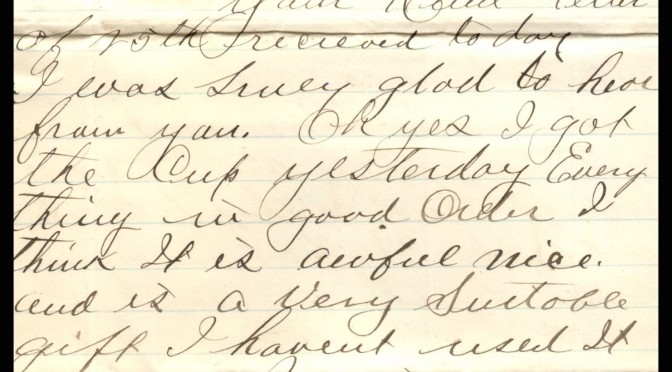 Your Kind letter
of 25th recieved today
I was Surey glad to hear
from you. Oh yes I got
the Cup yesterday Every
thing in good Order I
think It is awful nice.
and is a Very Suitable
gift I havent used It